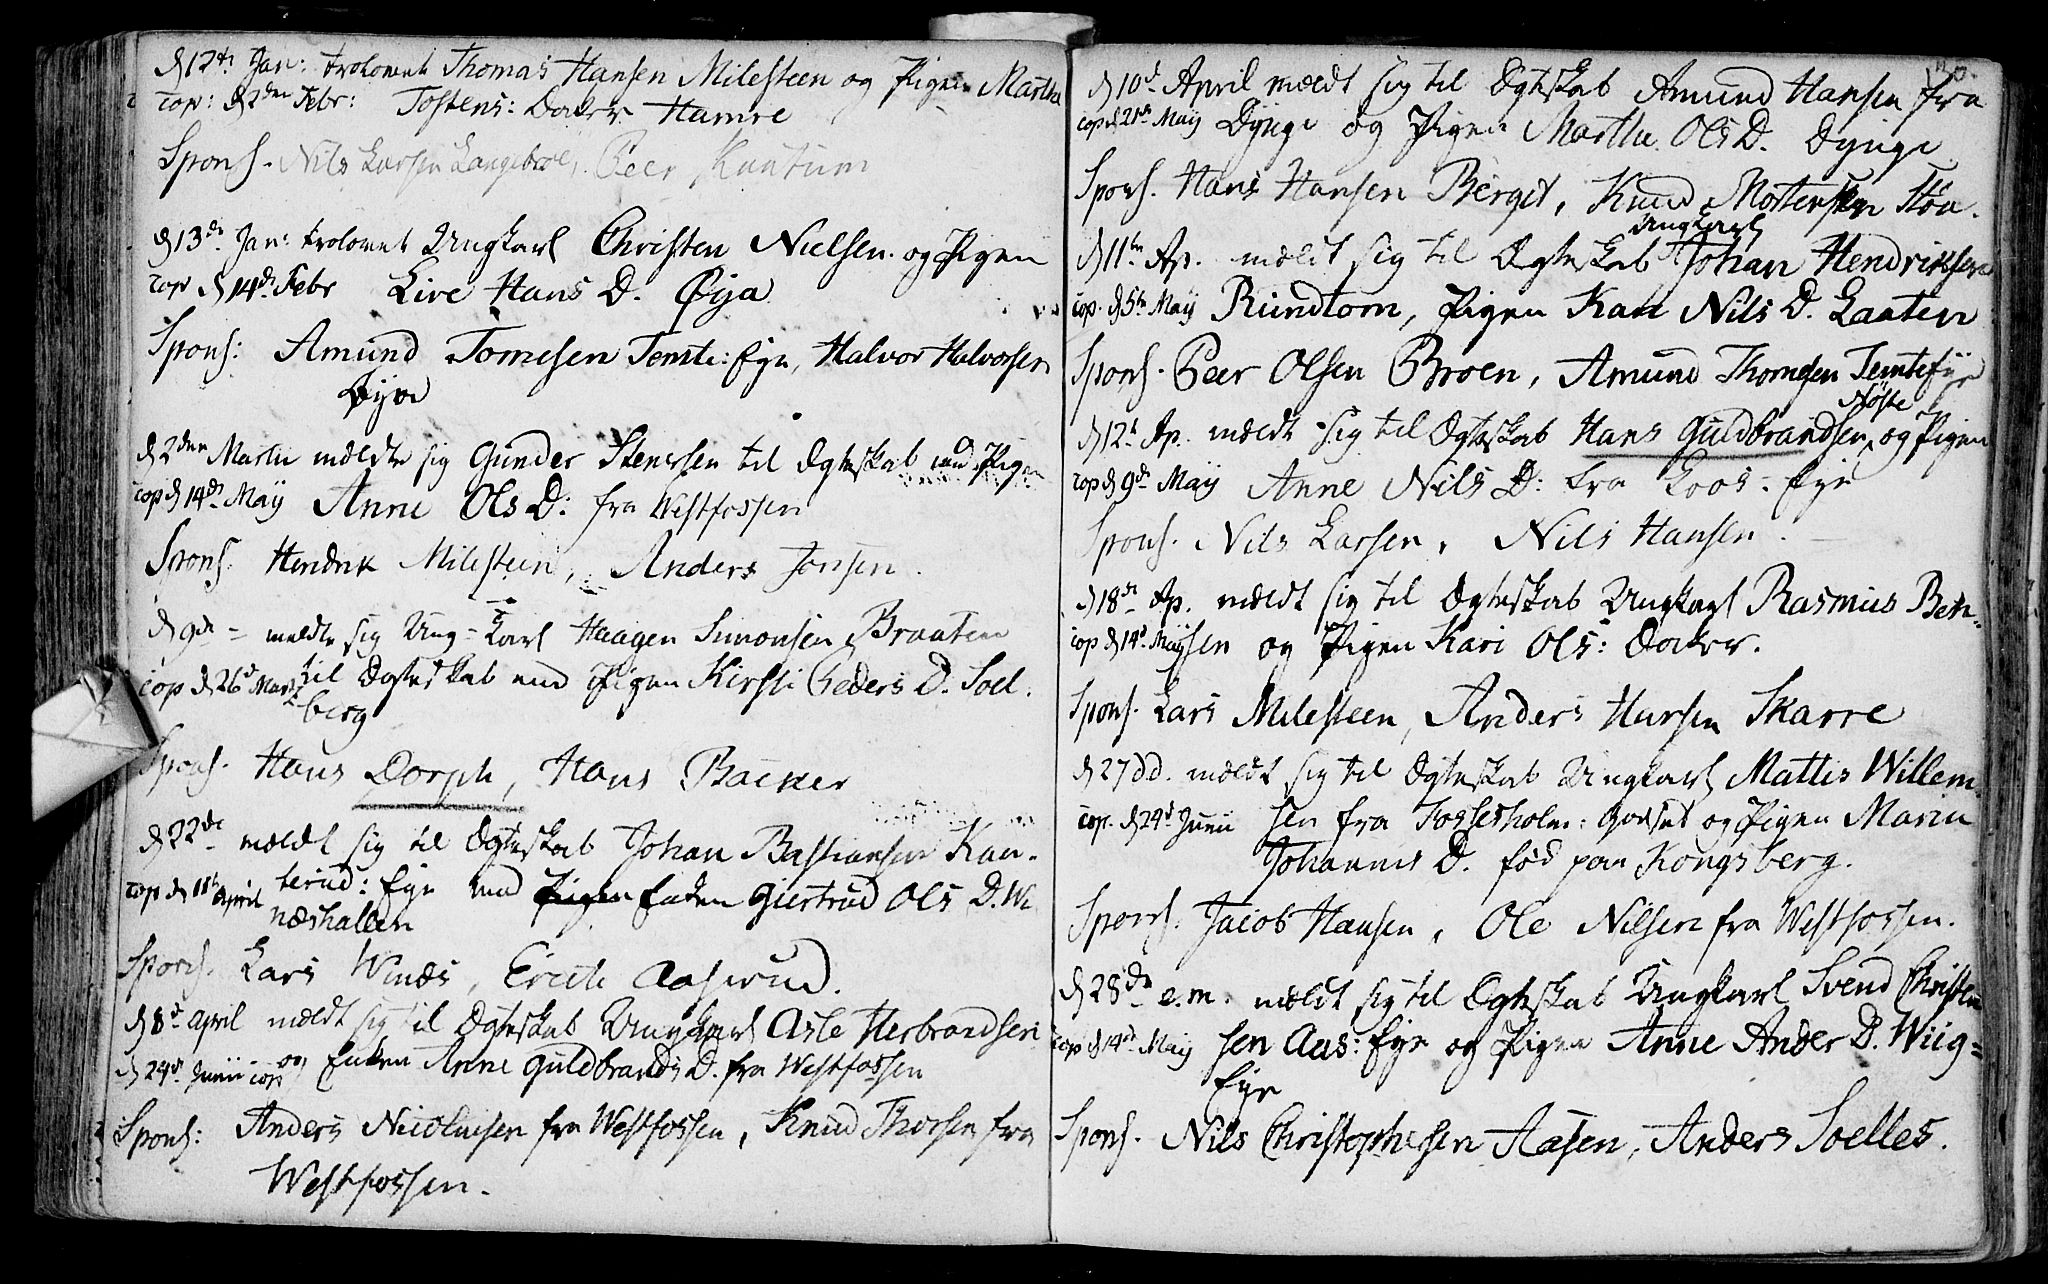 d 12te Jan: trolovet Thomas Hansen Milesteen og Pigen Martha
cop: d 2den Febr: Tostens: Dotter Hamre
Spons. Nils Larsen Langebroe, Peer Kaatum
d 13de Jan: trolovet Ungkarl Christen Nielsen og Pigen
cop d 14de Febr Live Hans D. Øya
Spons: Amund Tomesen Temte: Eye, Halvor Halvorsen
Øye
d 2den Martii meldte sig Gunder Stensen til Ægteskab med Pigen
cop d 14de Maÿ Anne Ols D: fra Westfossen
Spons. Hendrik Milesteen, Anders Jonsen.
d 9de = meldte sig Ung-Karl Haagen Simonsen Braaten
cop d 26de Marti til Ægteskab med Pigen Kirsti Peders D. Soel-
berg
Spons. Hans Dorph, Hans Backer
d 22de meldt sig til Ægteskab Johan Bastiansen Kan-
cop d 11te April terud: Eye med Enken Giertrud Ols D. Wi
næshallen
Spons. Lars Winæs, Erich Aaserud.
d 8de april meldt sig til Ægteskab Ungkarl Asle Herbrandsen
d 24de Junii cop og Enken Anne Guldbrands D. fra Westfossen
Spons: Anders Nicolaisen fra Westfossen, Knud Thorsen fra
Westfossen.
130.
d 10de April meldt sig til Ægteskab Amund Hansen fra
cop d 21de Maÿ Dynge og Pigen Marthe Ols D. Dynge
Spons. Hans Hansen Berget, Knud Mortensen Støa.
Ungkarl
d 11te Ap. meldt sig til Ægteskab Johan Hendriksen
cop. d 5te Maÿ Rundtom, Pigen Kari Nils D. Laaten
Spons. Peer Olsen Broen, Amund Thomesen Temte Eye
Nøste
d 12te Ap. meldt sig til Ægteskab Hans Guldbrandsen og Pigen
cop d 9de Maÿ Anne Nils D: fra Loos-Eye
Spons. Nils Larsen, Nils Hansen.
d 18de Ap. meldt sig til Ægteskab Ungkarl Rasmus Ben-
cop d 14de Maÿ sen og Pigen Kari Ols: Dotter.
Spons. Lars Milesteen, Anders Hansen Skarre
d 27 dd. meldt sig til Ægteskab Ungkarl Mattis Willem-
cop. d 24de Junii sen fra Fossesholm: Godset og Pigen Maria
Johannis D. fød paa Kongsberg.
Spons. Jacob Hansen, Ole Nilsen fra Westfossen.
d 28de e.m. meldt sig til Ægteskab Ungkarl Svend Christen
cop d 14de Maÿ sen Aas: Eye og Pigen Anne Ander D. Wiig=
Eye
Spons. Nils Christophersen Aasen, Anders Soelles.